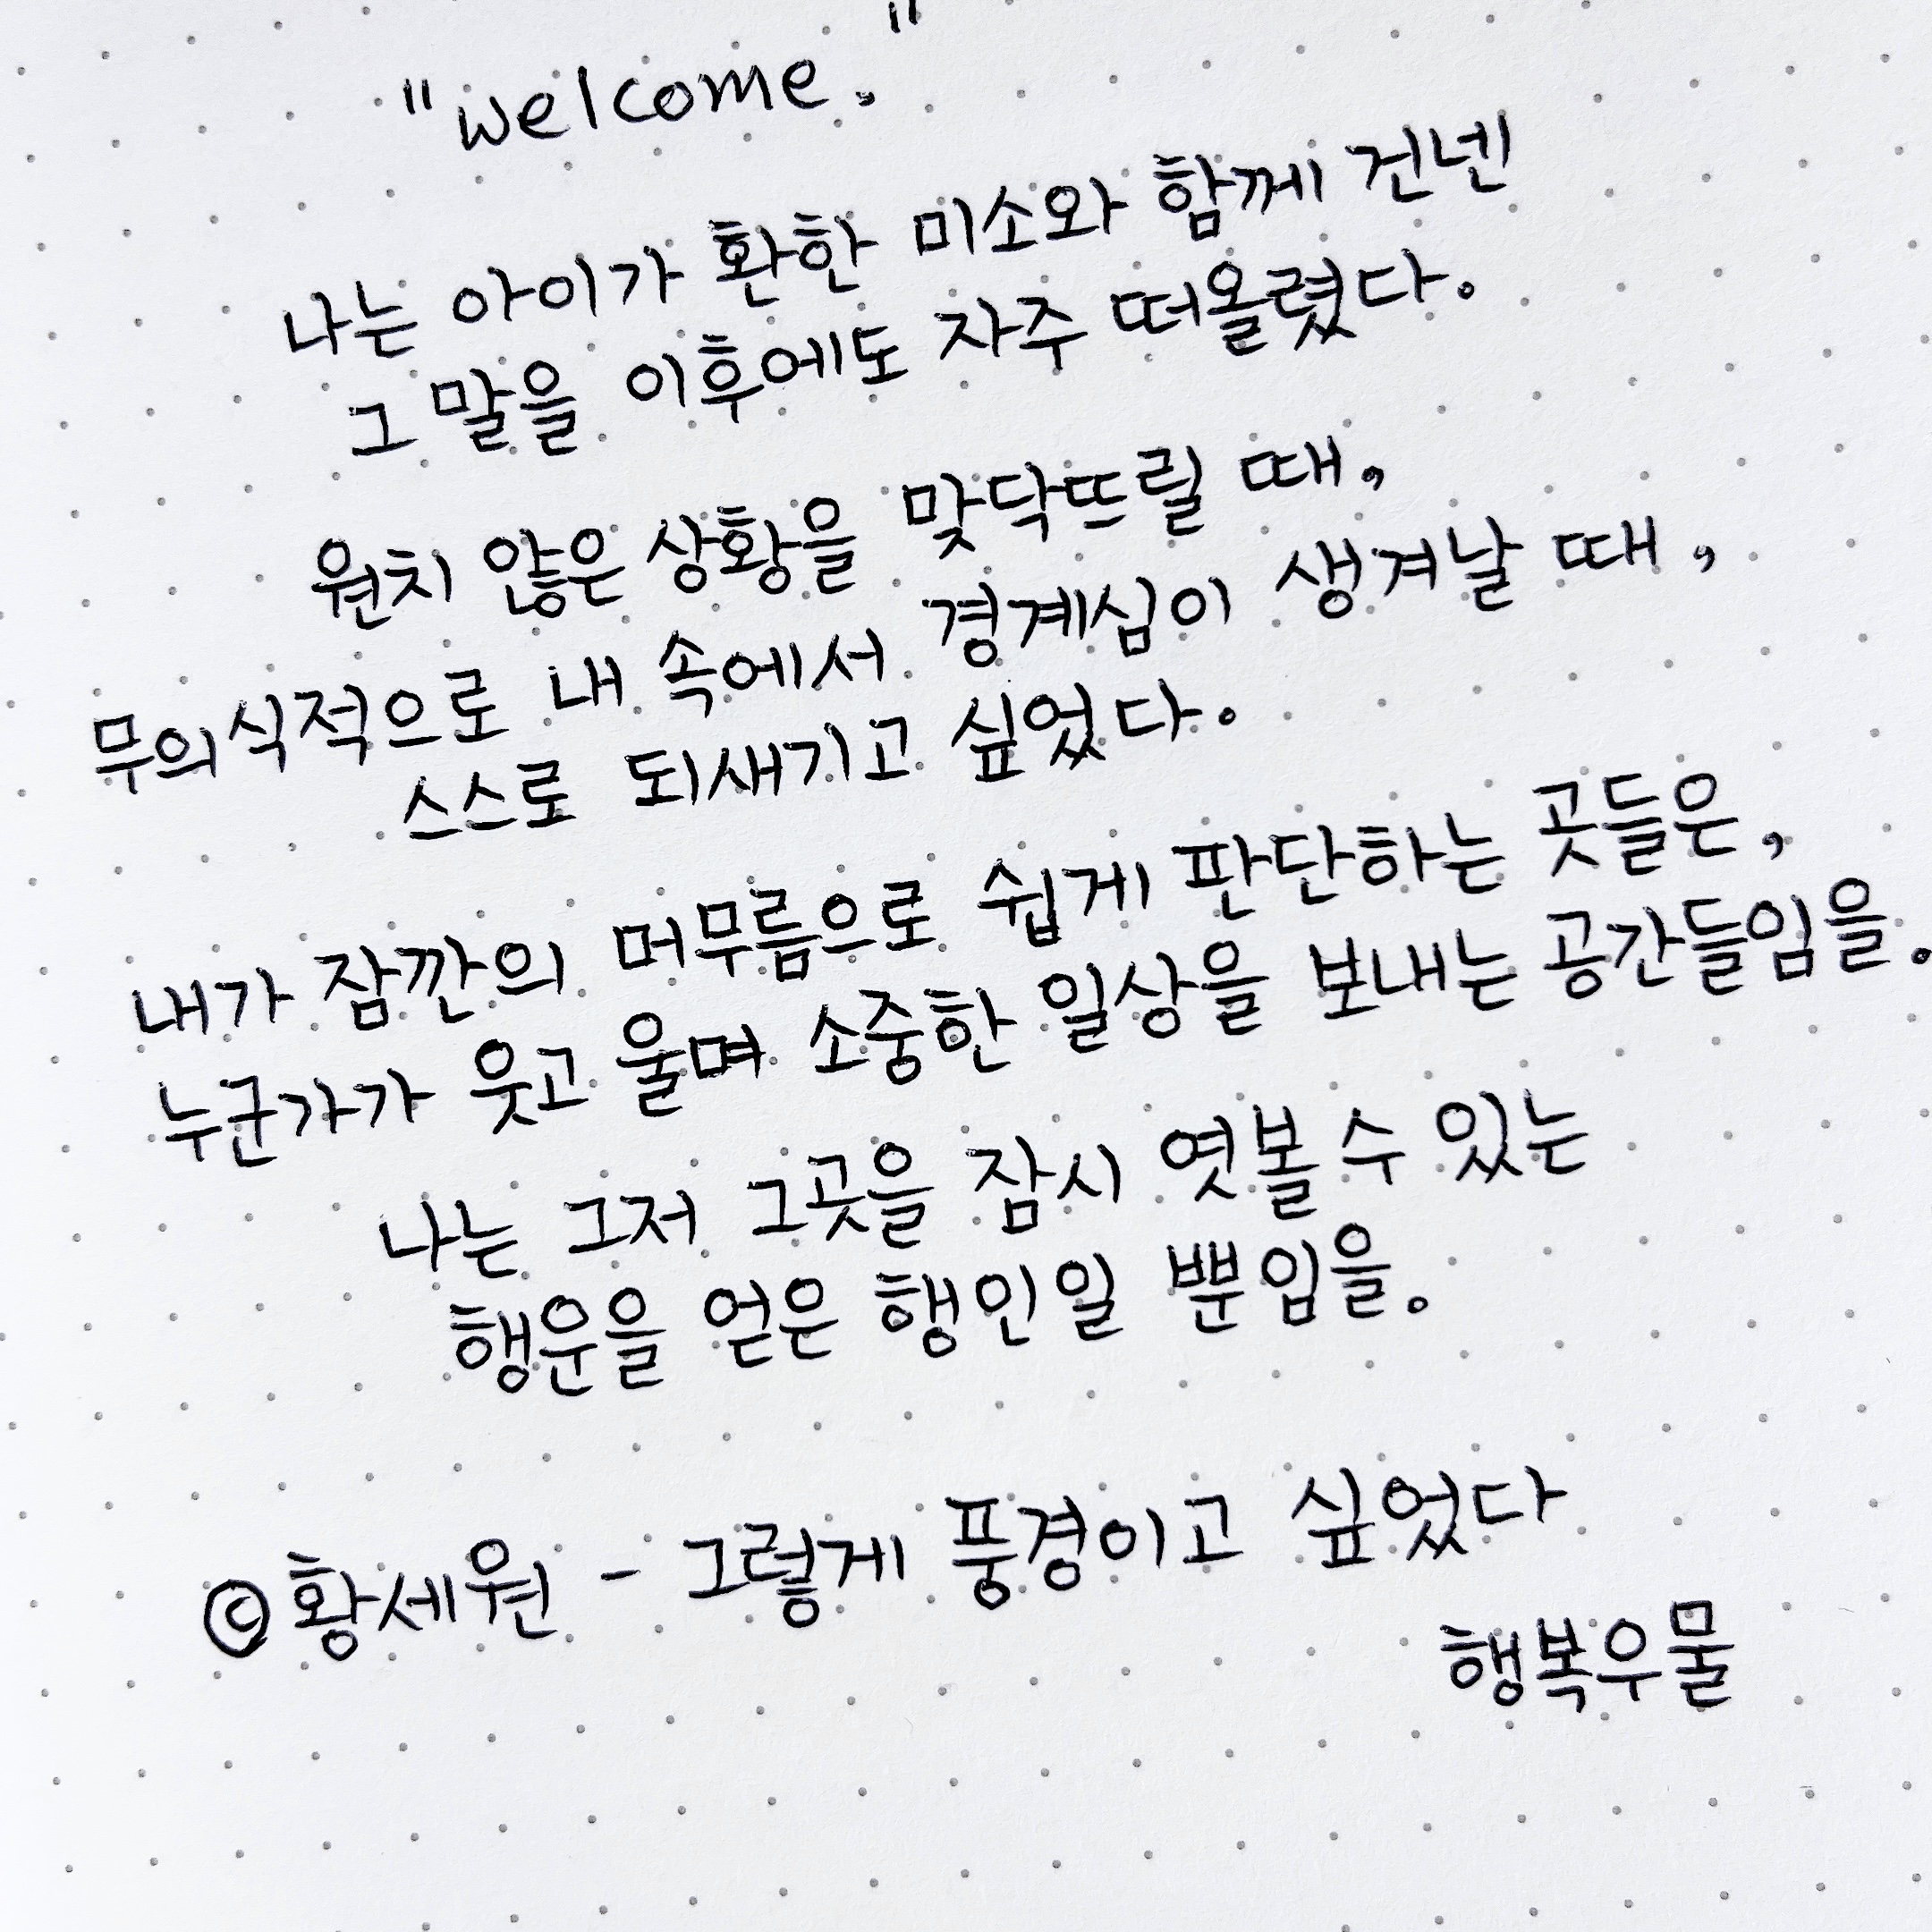 "welcome."
나는 아이가 환한 미소와 함께 건넨
그 말을 이후에도 자주 떠올렸다.
원치 않은 상황을 맞닥뜨릴 때,
무의식적으로 내 속에서 경계심이 생겨날 때,
스스로 되새기고 싶었다.
내가 잠깐의 머무름으로 쉽게 판단하는 곳들은,
누군가가 웃고 울며 소중한 일상을 보내는 공간들임을.
나는 그저 그곳을 잠시 엿볼 수 있는
행운을 얻은 행인일 뿐임을.
©황세원 - 그렇게 풍경이고 싶었다
행복우물